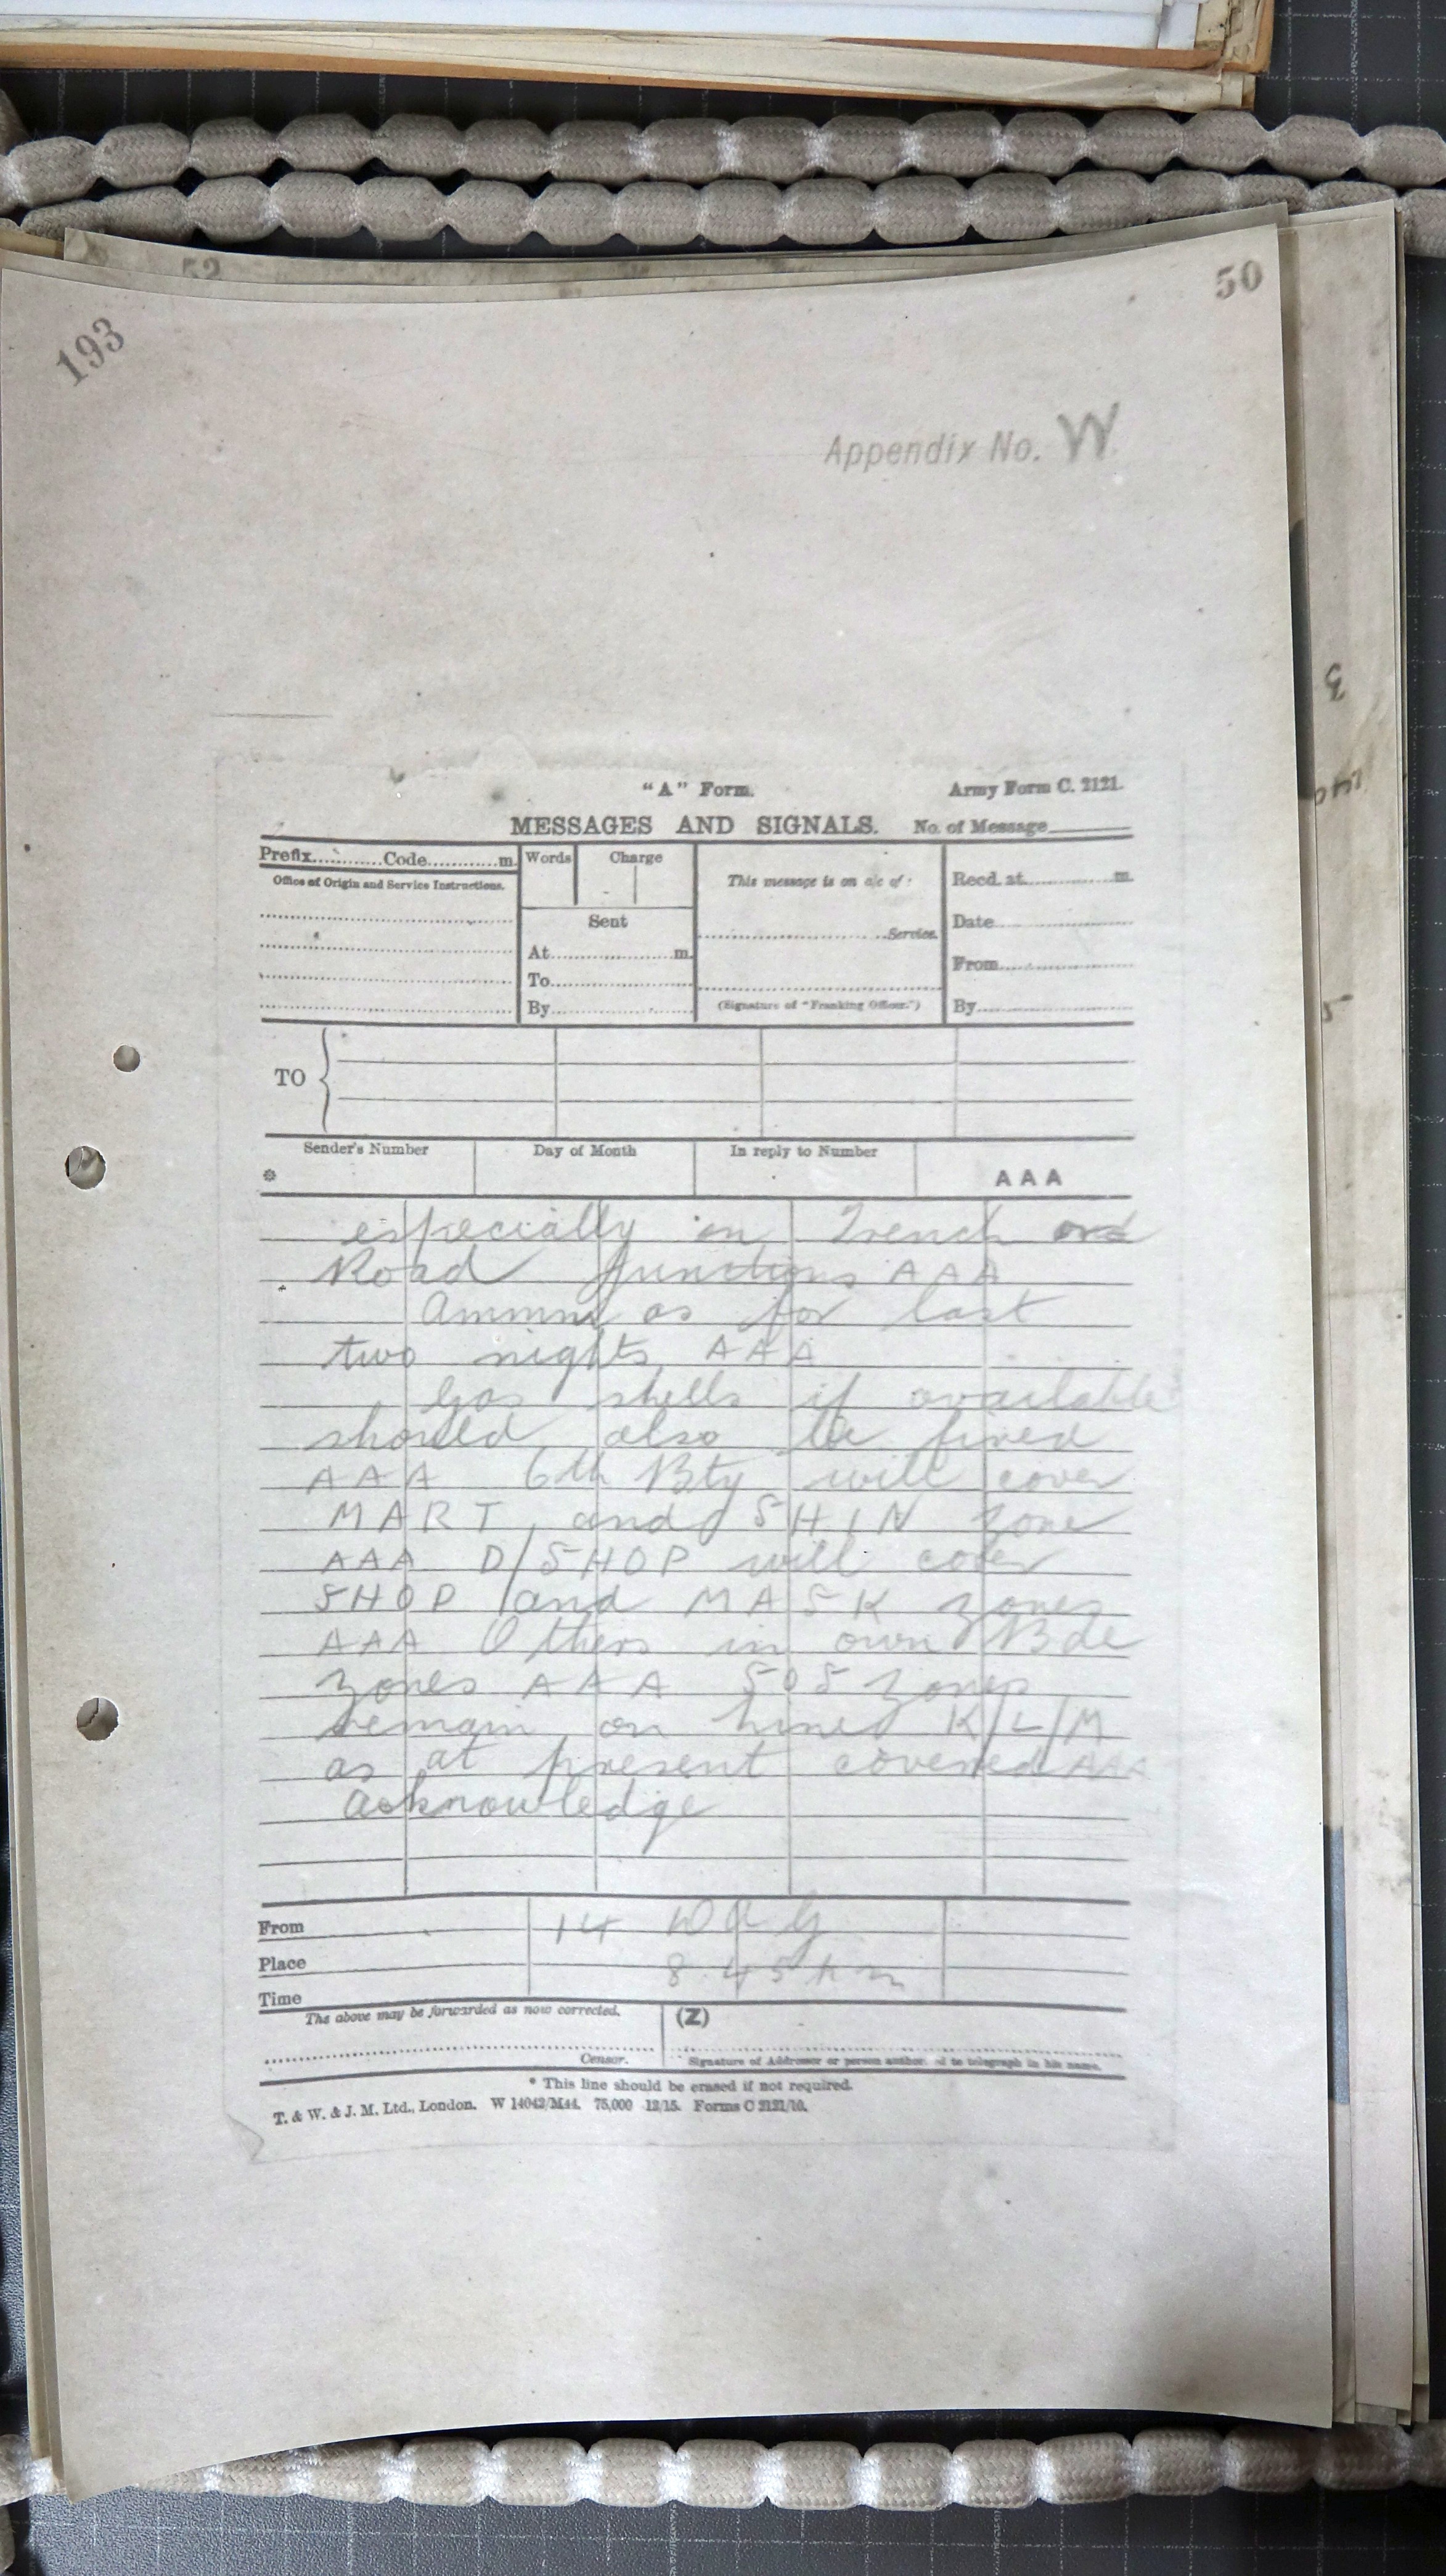 52
193
50
Appendix No. W
"A" Form.
Army Form C. 2121.
MESSAGES AND SIGNALS.
No. of Message
Prefix............Code............m.
Words
Charge
This message is on a/c of:
Recd. at............m.
Office of Origin and Service Instructions.
Sent
Date
Service.
At............m.
From
To
(Signature of "Franking Officer.")
By
By
TO
Sender's Number
Day of Month
In reply to Number
*
AAA
especially on Trench and
Road junctions AAA
Ammn as for last
two nights AAA
Gas shells if available
should also be fired
AAA 6th Bty will cover
MART and SHIN zone
AAA D/SHOP will cover
SHOP and MASK zones
AAA Others in own Bde
zones AAA SOS zones
remain on lines K/L/M
as at present covered AAA
Acknowledge
From
14 DAG
Place
8.45 pm
Time
The above may be forwarded as now corrected.
(Z)
Censor.
Signature of Addressor or person authorised to telegraph in his name.
* This line should be erased if not required.
T. & W. & J. M. Ltd., London. W 14042/M44. 75,000 12/15. Forms C 2121/10.